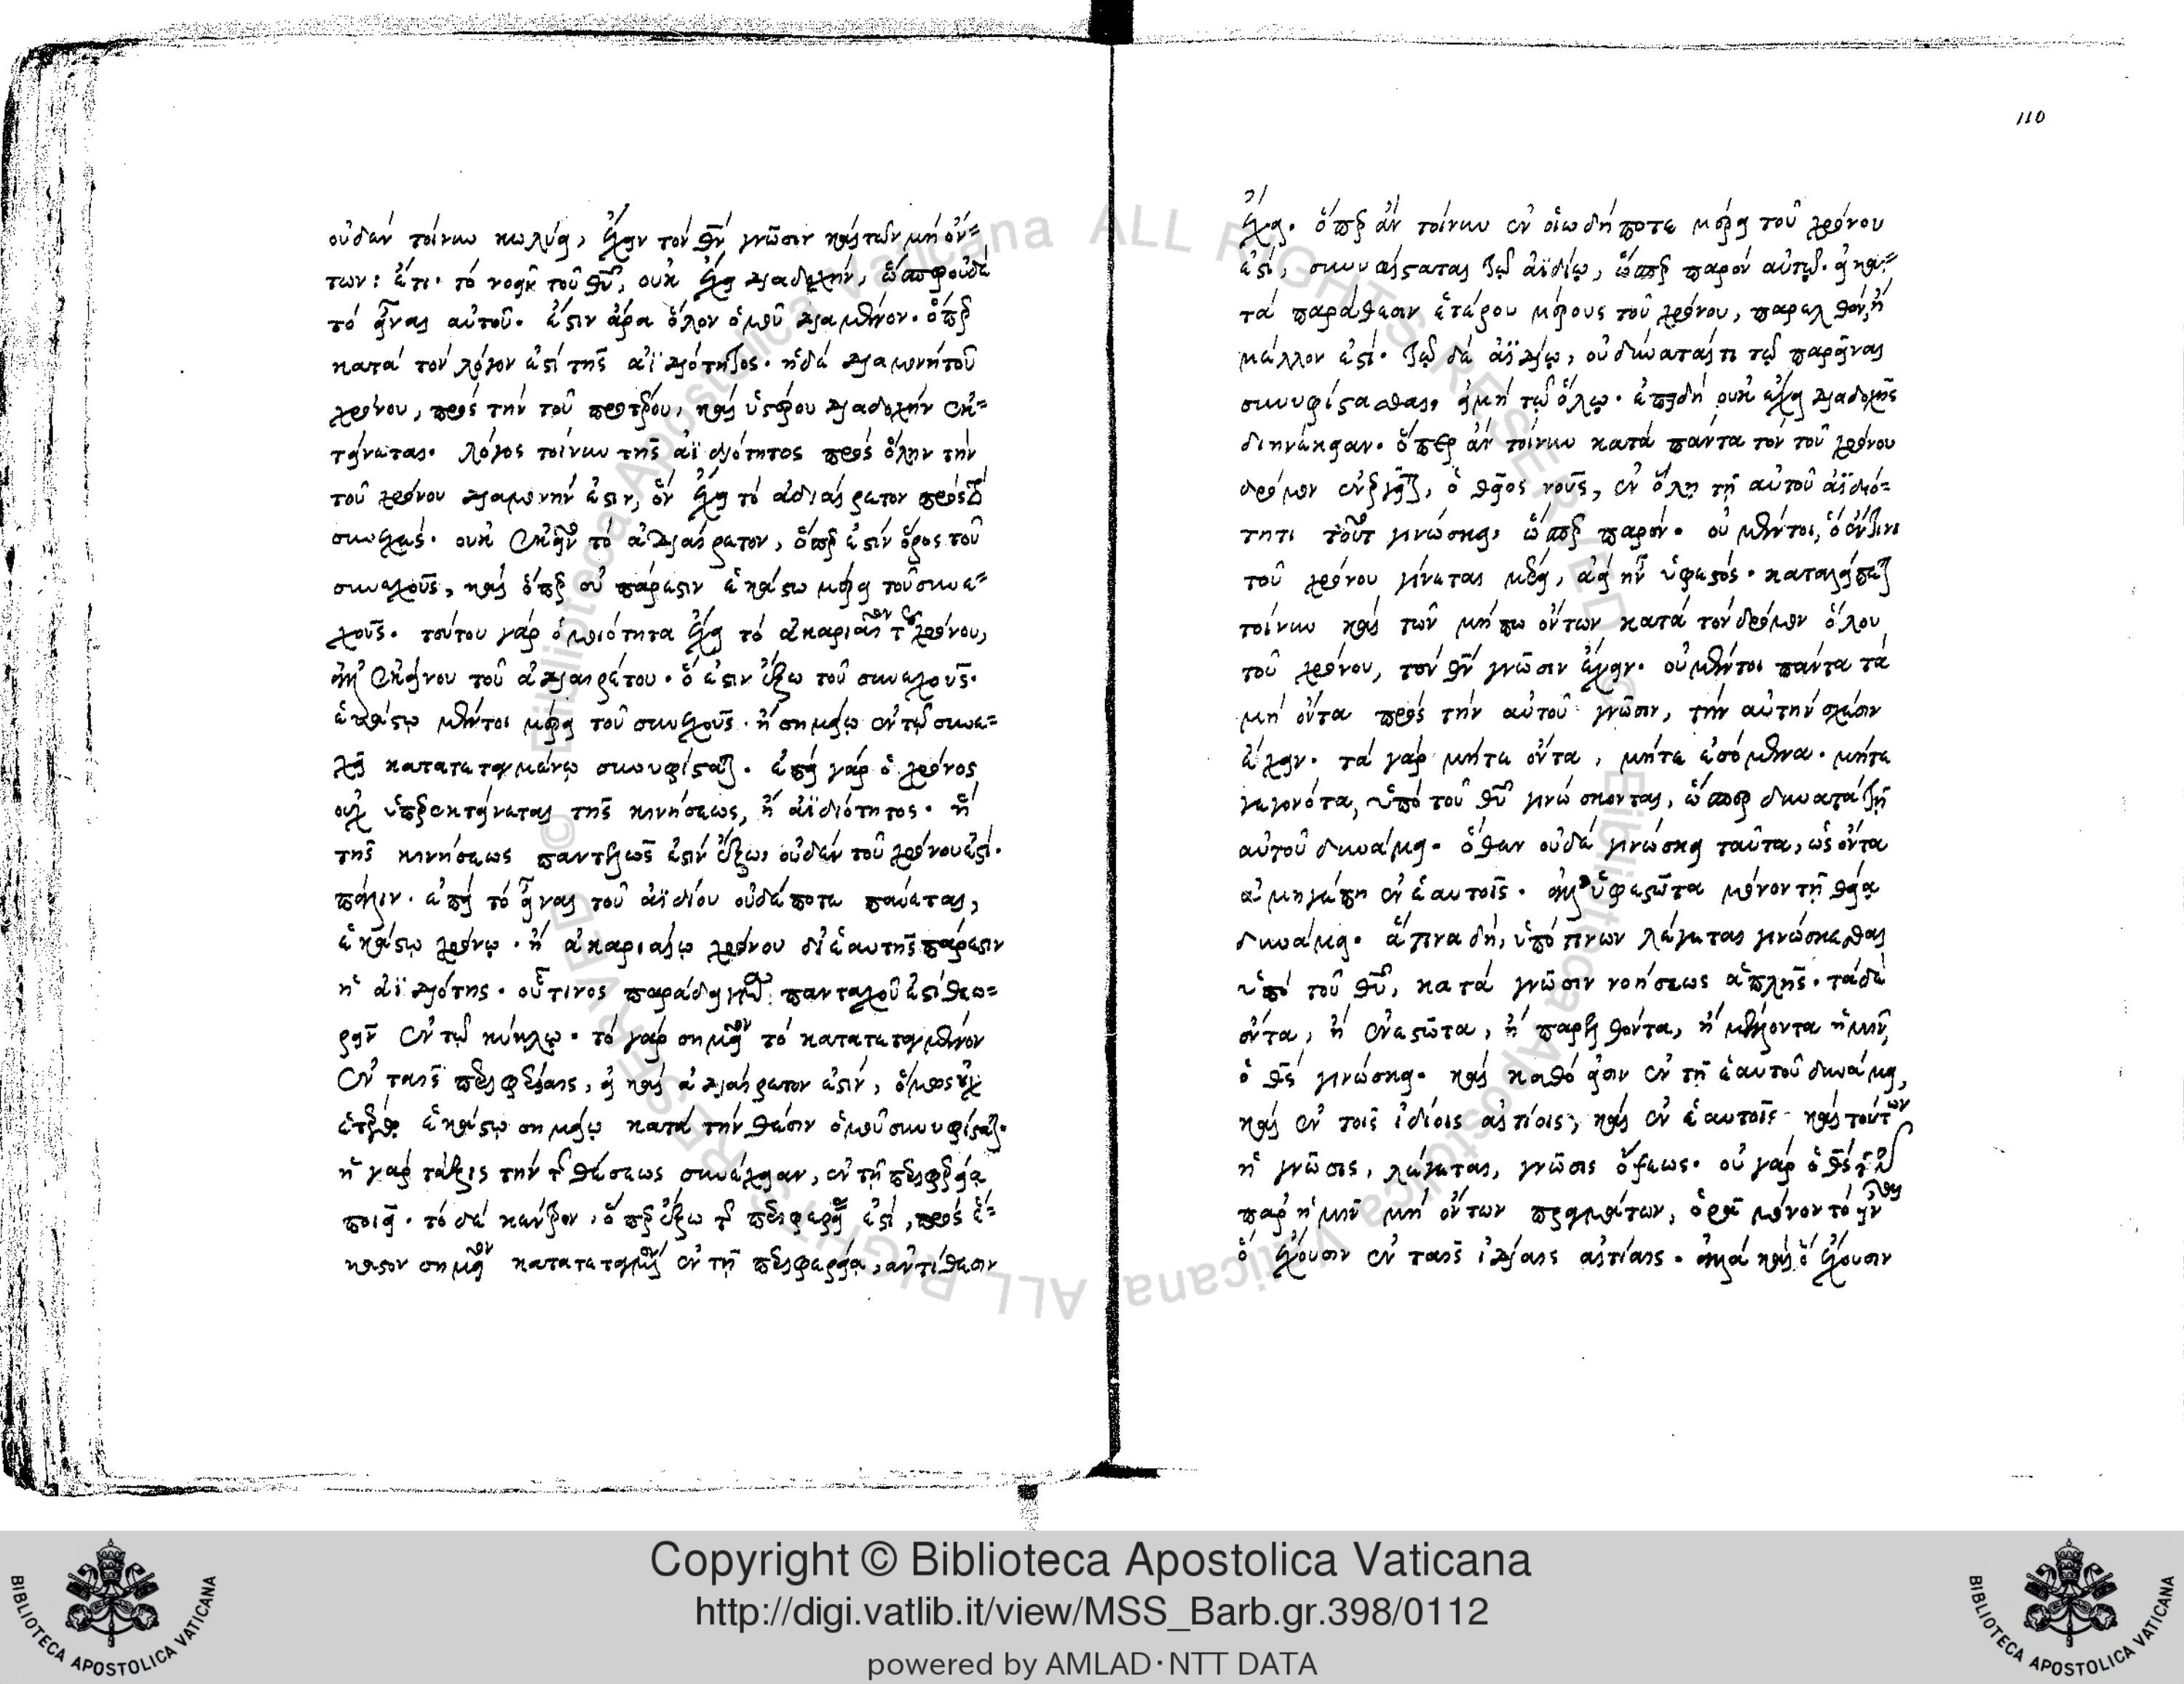 οὐδὲν τοίνυν κωλύει, ἔχειν τὸν θν̄ γνῶσιν καὶ τῶν μὴ ὄν=
των: ἔτι· τὸ νοεῖν τοῦ θῦ, οὐκ ἔχει διαδοχὴν, ὥσπερ οὐδὲ
τὸ εἶναι αὐτοῦ. ἔστιν ἄρα ὅλον ὁμοῦ διαμένον. ὅπερ
κατὰ τὸν λόγον ἐστὶ τῆς ἀϊδιότητος. ἡ δὲ διαμονὴ τοῦ
χρόνου, πρὸς τὴν τοῦ προτέρου, καὶ ὑστέρου διαδοχὴν ἐκ=
τείνεται. λόγος τοίνυν τῆς ἀϊδιότητος πρὸς ὅλην τὴν
τοῦ χρόνου διαμονήν ἐστιν, ὃν ἔχει τὸ ἀδιαίρετον πρὸς τὸ
συνεχές. οὐκ ἐκεῖνο τὸ ἀδιαίρετον, ὅπερ ἐστὶν ὅρος τοῦ
συνεχοῦς, καὶ ὅπερ οὐ πάρεστιν ἑκάστῳ μέρει τοῦ συνε=
χοῦς. τούτου γὰρ ὁμοιότητα ἔχει τὸ ἀκαριαῖον τοῦ χρόνου,
ἀλλ' ἐκείνου τοῦ ἀδιαιρέτου. ὅ ἐστιν ἔξω τοῦ συνεχοῦς.
ἑκάστῳ μέντοι μέρει τοῦ συνεχοῦς. ἢ σημείῳ ἐν τῷ συνε=
χεῖ κατατεταγμένῳ συνυφίσταται. ἐπεὶ γὰρ ὁ χρόνος
οὐχ ὑπερεκτείνεται τῆς κινήσεως, ἡ ἀϊδιότητος. ἢ
τῆς κινήσεως παντελῶς ἐστὶν ἔξω, οὐδὲν τοῦ χρόνου ἐστί.
πάλιν. ἐπεὶ τὸ εἶναι τοῦ ἀϊδίου οὐδέποτε παύεται,
ἑκάστῳ χρόνῳ. ἢ ἀκαριαίῳ χρόνου δι' ἑαυτῆς πάρεστιν
ἡ ἀϊδιότης. οὗτινος παράδειγμα πανταχοῦ ἐστὶ θεω=
ρεῖν ἐν τῷ κύκλῳ. τὸ γὰρ σημεῖον τὸ κατατεταγμένον
ἐν ταῖς περιφερείαις, εἰ καὶ ἀδιαίρετον ἐστίν, ὅμως οὐχ
ἑτέρῳ ἑκάστῳ σημείῳ κατὰ τὴν θέσιν ὁμοῦ συνυφίσταται.
ἡ γὰρ τάξις τὴν τῆς θέσεως συνέχειαν, ἐν τῇ περιφερείᾳ
ποιεῖ. τὸ δὲ κέντρον, ὅπερ ἔξω τῆς περιφερείας ἐστί, πρὸς ἕ=
καστον σημεῖον κατατεταγμένον ἐν τῇ περιφερείᾳ, ἀντίθεσιν
110
ἔχει. ὅπερ ἂν τοίνυν ἐν οἱωδήποτε μέρει τοῦ χρόνου
ἐστί, συνυφίσταται τῷ ἀϊδίῳ, ὥσπερ παρὸν αὐτῷ. εἰ κα=
τὰ παράθεσιν ἑτέρου μέρους τοῦ χρόνου, παρελθὸν, ἢ
μέλλον ἐστί. τῷ δὲ ἀϊδίῳ, οὐ δύναταί τι τῷ παρεῖναι
συνυφίστασθαι, εἰ μὴ τῷ ὅλῳ. ἐπειδὴ οὐκ ἔχει διαδοχῆς
διηνέκειαν. ὅπερ ἂν τοίνυν κατὰ πάντα τὸν τοῦ χρόνου
δρόμον ἐνεργεῖται, ὁ θεῖος νοῦς, ἐν ὅλῃ τῇ αὐτοῦ ἀϊδιό=
τητι τοῦτο γινώσκει, ὥσπερ παρόν. οὐ μέντοι, ὃ ἔν τινι
τοῦ χρόνου γίνεται μέρει, ἀεὶ ἦν ὑφεστός. καταλείπεται
τοίνυν καὶ τῶν μήπω ὄντων κατὰ τὸν δρόμον ὅλου
τοῦ χρόνου, τὸν θν̄ γνῶσιν ἔχειν. οὐ μέντοι πάντα τὰ
μὴ ὄντα πρὸς τὴν αὐτοῦ γνῶσιν, τὴν αὐτὴν σχέσιν
ἔχειν. τὰ γὰρ μήτε ὄντα, μήτε ἐσόμενα. μήτε
γεγονότα, ὑπὸ τοῦ θῦ γινώσκονται, ὥσπερ δυνατὰ τῇ
αὐτοῦ δυνάμει. ὅθεν οὐδὲ γινώσκει ταῦτα, ὡς ὄντα
ἀμηγέπη ἐν ἑαυτοῖς. ἀλλ' ὑφεστῶτα μόνον τῇ θείᾳ
δυνάμει. ἅτινα δὴ, ὑπό τινων λέγεται γινώσκεσθαι
ὑπὸ τοῦ θῦ, κατὰ γνῶσιν νοήσεως ἁπλῆς. τὰ δὲ
ὄντα, ἢ ἐνεστῶτα, ἢ παρελθόντα, ἢ μέλλοντα ἡμῖν,
ὁ θς̄ γινώσκει. καὶ καθό εἰσιν ἐν τῇ ἑαυτοῦ δυνάμει,
καὶ ἐν τοῖς ἰδίοις αἰτίοις, καὶ ἐν ἑαυτοῖς. καὶ τούτων
ἡ γνῶσις, λέγεται, γνῶσις ὄψεως. οὐ γὰρ ὁ θς̄ τῶν
παρ' ἡμῖν μὴ ὄντων πραγμάτων, ὁρᾷ μόνον τὸ εἶναι
ὃ ἔχουσιν ἐν ταῖς ἰδίαις αἰτίαις. ἀλλὰ καὶ ὃ ἔχουσιν
Copyright © Biblioteca Apostolica Vaticana
http://digi.vatlib.it/view/MSS_Barb.gr.398/0112
powered by AMLAD·NTT DATA